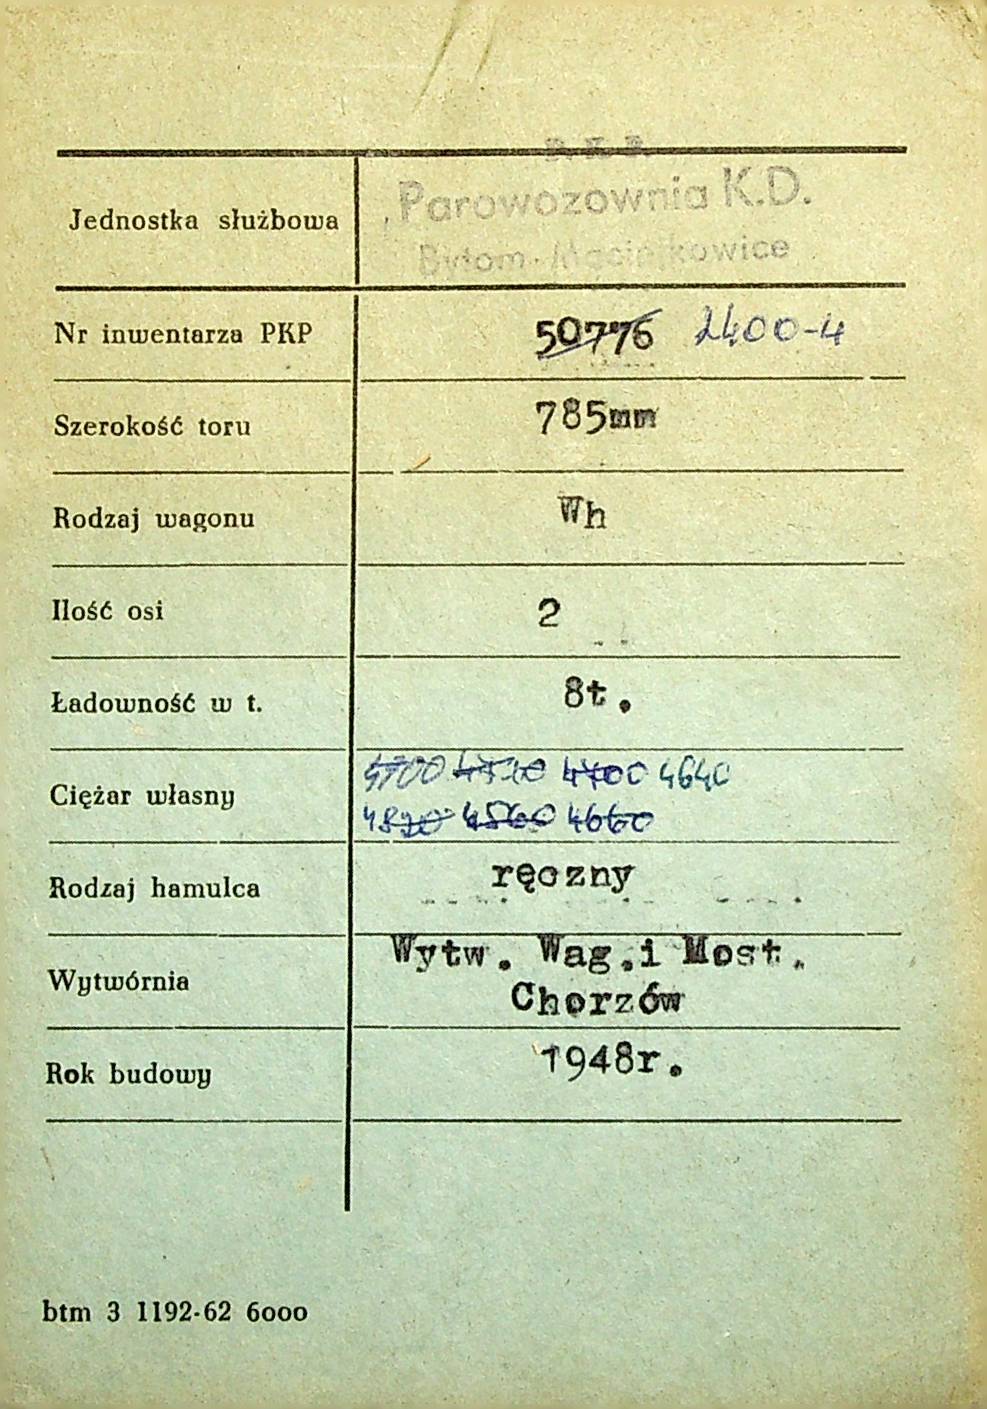 P. K. P.
Jednostka służbowa Parowozownia K.D.
Bytom-Maciejkowice
Nr inwentarza PKP 50776 2400-4
Szerokość toru 785mm
Rodzaj wagonu Wh
Ilość osi 2
Ładowność w t. 8t.
Ciężar własny 4700 4400 4640
4560 4660
Rodzaj hamulca ręczny
Wytwórnia Wytw. Wag.i Most.
Chorzów
Rok budowy 1948r.
btm 3 1192-62 6000